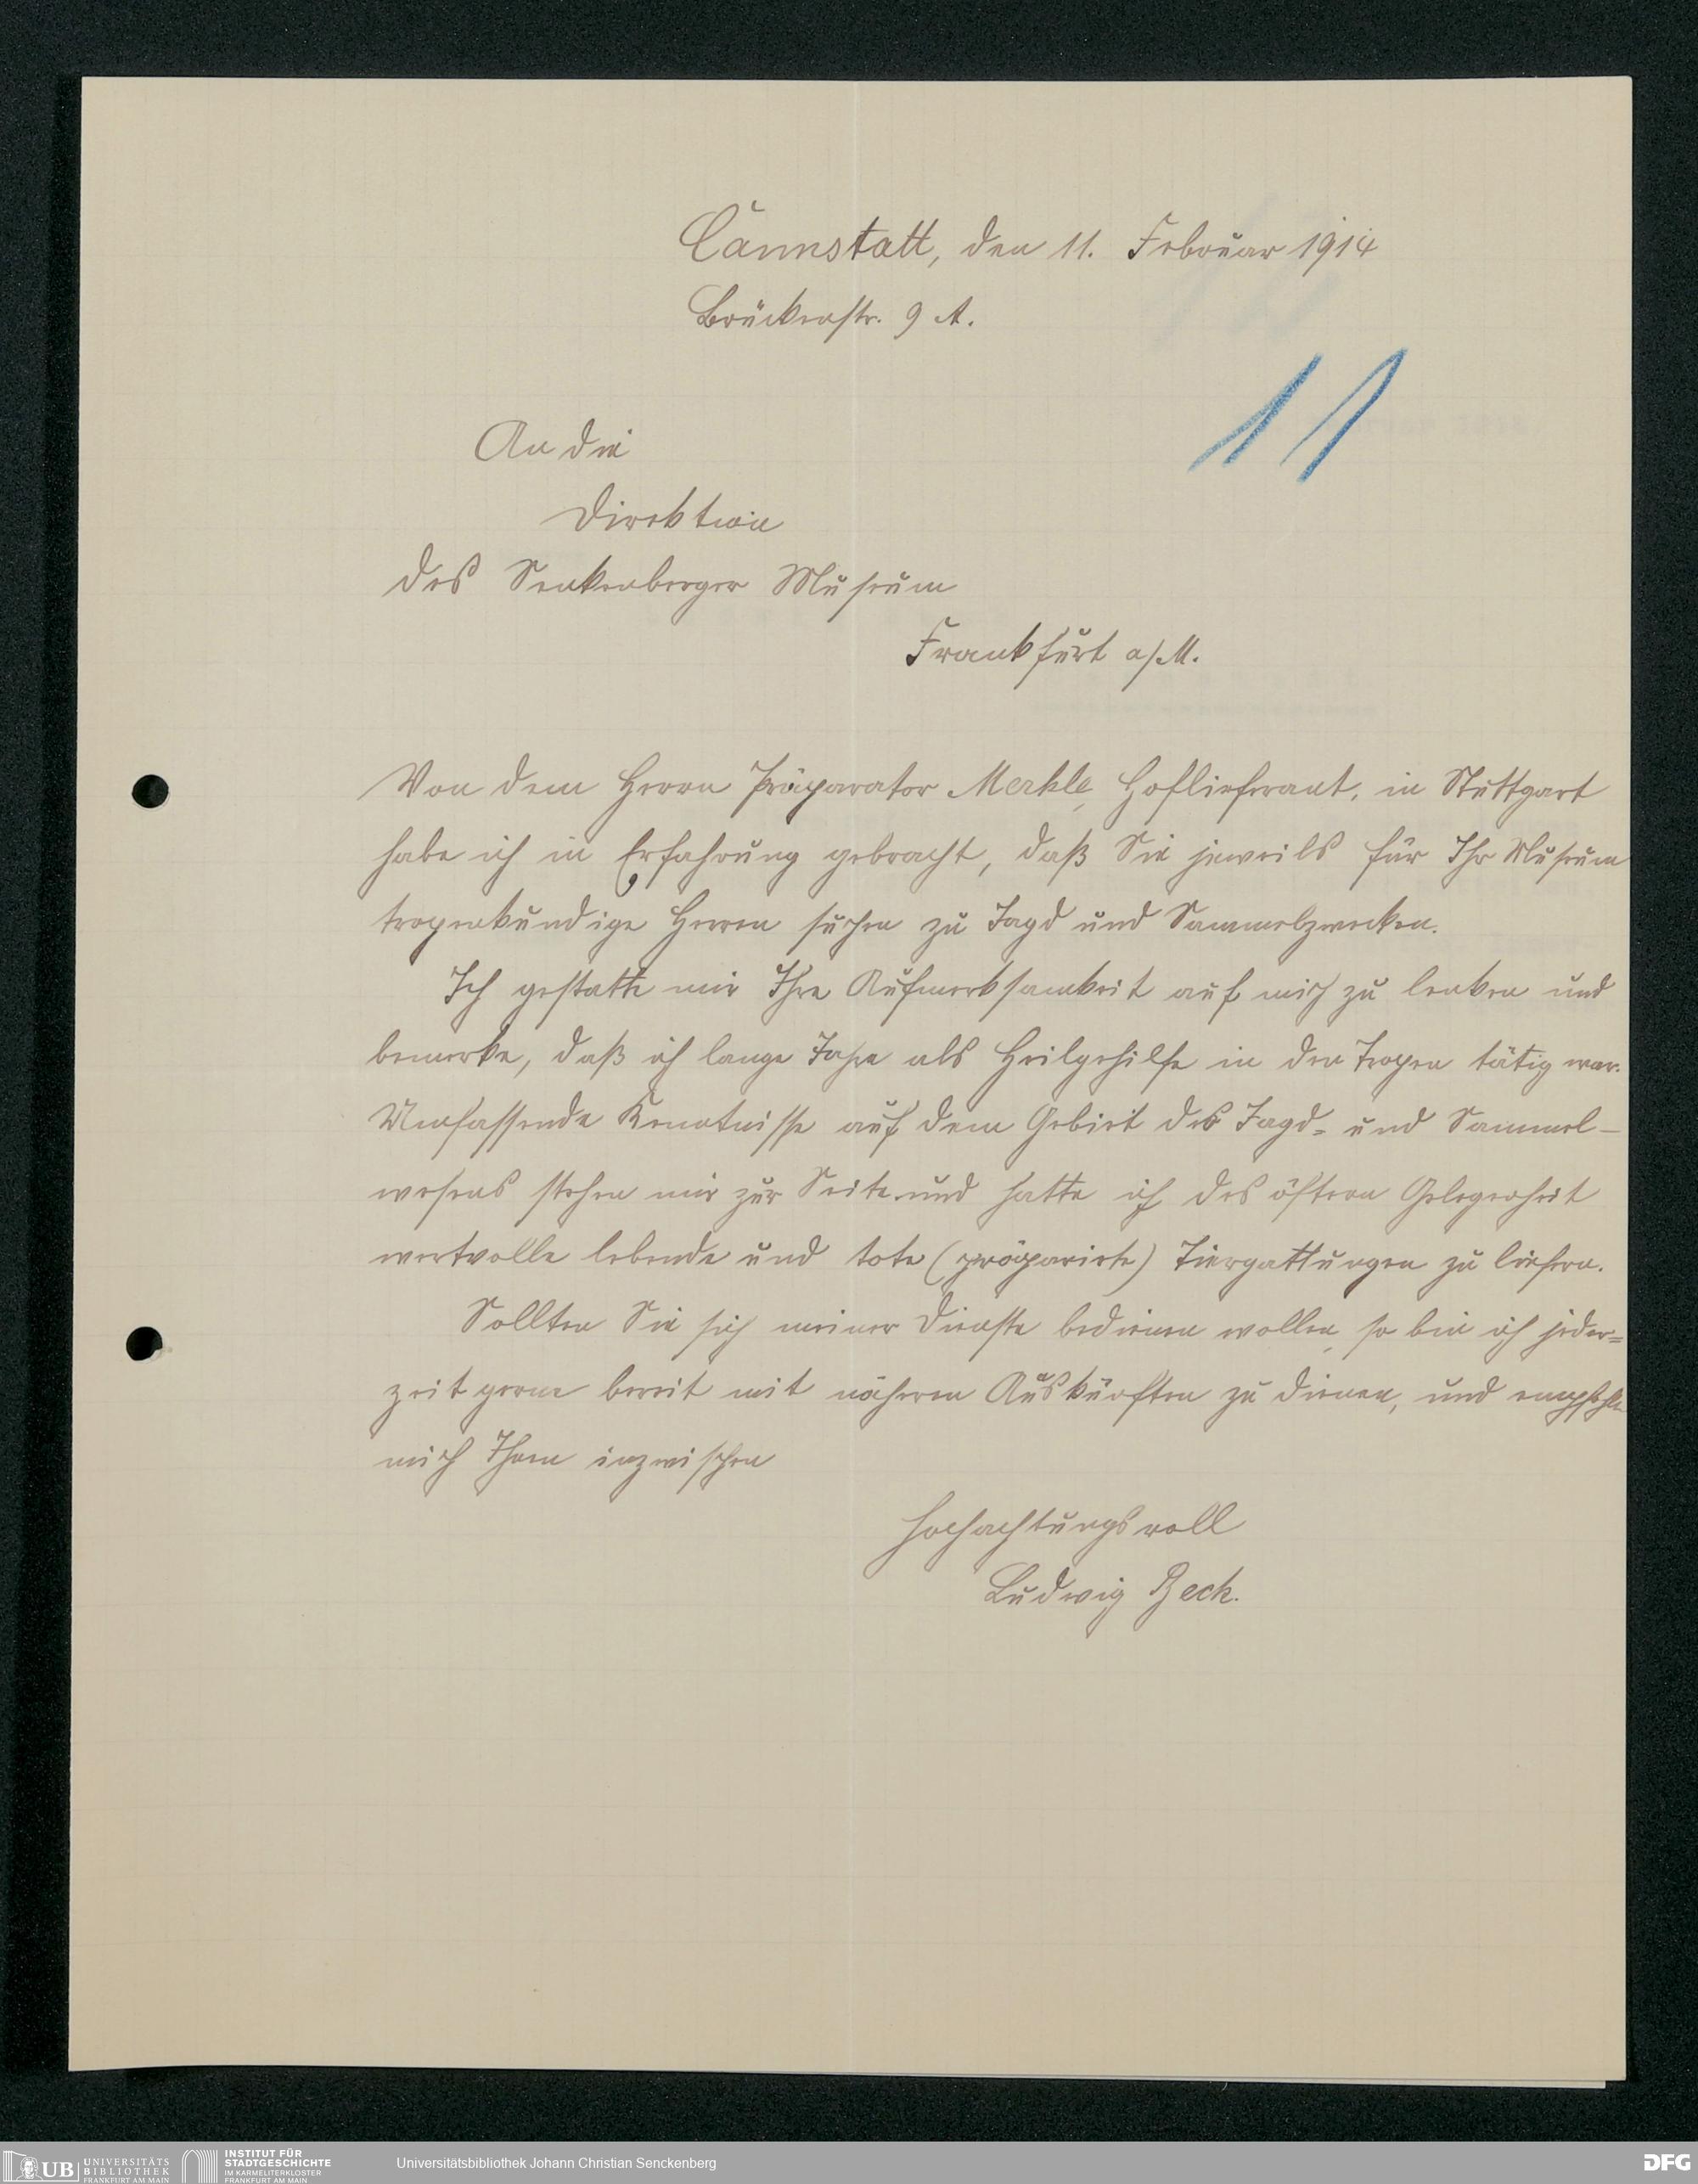 Cannstatt, den 11. Februar 1914
Brückenstr. 9 A.
11
An die
Direktion
des Senkenberger Museum
Frankfurt a/M.
Von dem Herrn Präparator Merkle, Hoflieferant, in Stuttgart
habe ich in Erfahrung gebracht, daß Sie jeweils für Ihr Museum
tropenkundige Herren suchen zu Jagd und Sammelzwecken.
Ich gestatte mir Ihre Aufmerksamkeit auf mich zu lenken und
bemerke, daß ich lange Jahre als Heilgehilfe in den Tropen tätig war.
Umfassende Kenntnisse auf dem Gebiet des Jagd- und Sammel-
wesens stehen mir zur Seite und hatte ich des öftern Gelegenheit
wertvolle lebende und tote (präparirte) Tiergattungen zu liefern.
Sollten Sie sich meiner Dienste bedienen wollen, so bin ich jeder=
zeit gerne bereit mit näheren Auskünften zu dienen, und empfehle
mich Ihnen inzwischen
hochachtungsvoll
Ludwig Beck.
UB UNIVERSITÄTS
BIBLIOTHEK
FRANKFURT AM MAIN
INSTITUT FÜR
STADTGESCHICHTE
IM KARMELITERKLOSTER
FRANKFURT AM MAIN
Universitätsbibliothek Johann Christian Senckenberg
DFG